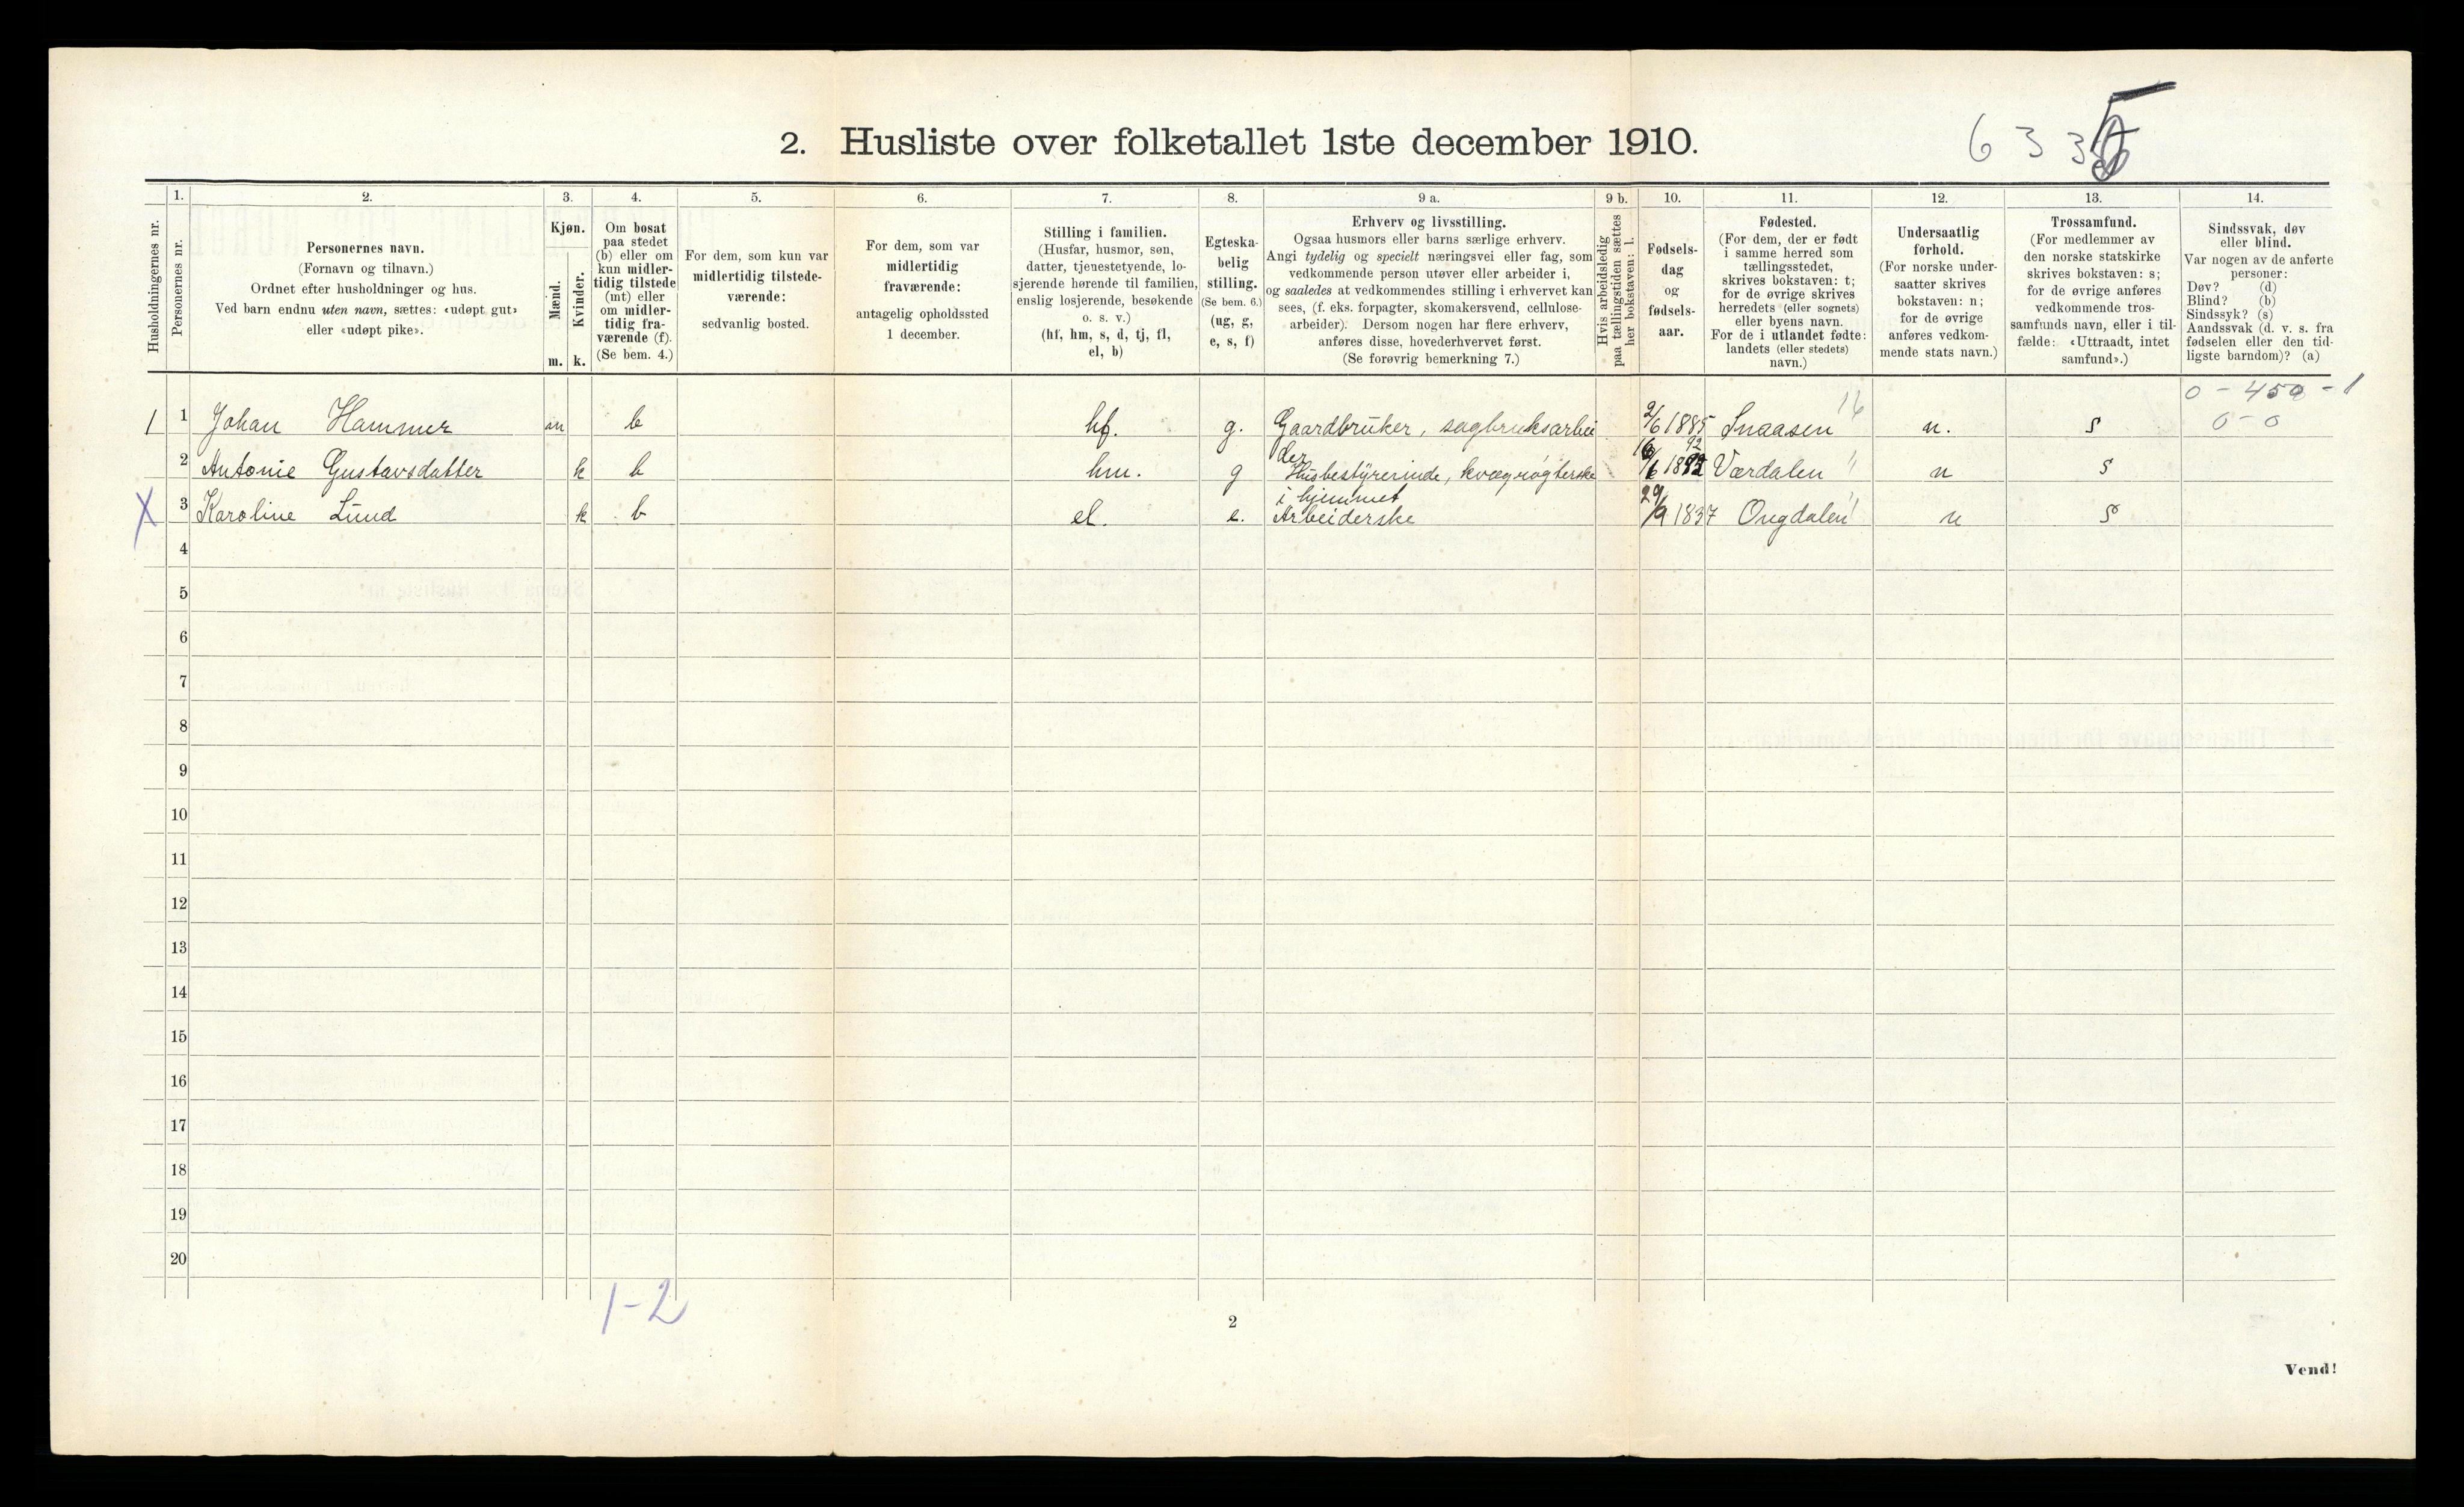 6 3 3
2. Husliste over folketallet 1ste december 1910.
Husholdningernes nr.
1. Personernes nr.
2. Personernes navn.
(Fornavn og tilnavn.)
Ordnet efter husholdninger og hus.
Ved barn endnu uten navn, sættes: «udøpt gut»
eller «udøpt pike».
3. Kjøn.
Mænd. m.
Kvinder. k.
4. Om bosat
paa stedet
(b) eller om
kun midler-
tidig tilstede
(mt) eller
om midler-
tidig fra-
værende (f).
(Se bem. 4.)
5. For dem, som kun var
midlertidig tilstede-
værende:
sedvanlig bosted.
6. For dem, som var
midlertidig
fraværende:
antagelig opholdssted
1 december.
7. Stilling i familien.
(Husfar, husmor, søn,
datter, tjenestetyende, lo-
sjerende hørende til familien,
enslig losjerende, besøkende
o. s. v.)
(hf, hm, s, d, tj, fl,
el, b)
8. Egteska-
belig
stilling.
(Se bem. 6.)
(ug, g,
e, s, f)
9 a. Erhverv og livsstilling.
Ogsaa husmors eller barns særlige erhverv.
Angi tydelig og specielt næringsvei eller fag, som
vedkommende person utøver eller arbeider i,
og saaledes at vedkommendes stilling i erhvervet kan
sees, (f. eks. forpagter, skomakersvend, cellulose-
arbeider). Dersom nogen har flere erhverv,
anføres disse, hovederhvervet først.
(Se forøvrig bemerkning 7.)
9 b. Hvis arbeidsledig
paa tællingstiden sættes
her bokstaven: l.
10. Fødsels-
dag
og
fødsels-
aar.
11. Fødested.
(For dem, der er født
i samme herred som
tællingsstedet,
skrives bokstaven: t;
for de øvrige skrives
herredets (eller sognets)
eller byens navn.
For de i utlandet fødte:
landets (eller stedets)
navn.)
12. Undersaatlig
forhold.
(For norske under-
saatter skrives
bokstaven: n;
for de øvrige
anføres vedkom-
mende stats navn.)
13. Trossamfund.
(For medlemmer av
den norske statskirke
skrives bokstaven: s;
for de øvrige anføres
vedkommende tros-
samfunds navn, eller i til-
fælde: «Uttraadt, intet
samfund».)
14. Sindssvak, døv
eller blind.
Var nogen av de anførte
personer:
Døv? (d)
Blind? (b)
Sindssyk? (s)
Aandssvak (d. v. s. fra
fødselen eller den tid-
ligste barndom)? (a)
1 1 Johan Hammer m b hf. g. Gaardbruker, sagbruksarbei 2/6 1885 Snaasen 16 n. s 0-0
der
2 Antonie Gustavsdatter k b hm. g Husbestyrerinde, kvægrøgterske 16/6 1892 Værdalen " n s
i hjemmet
X 3 Karoline Lund k b el. e. Arbeiderske 29/9 1837 Ongdalen n s
4
5
6
7
8
9
10
11
12
13
14
15
16
17
18
19
20
1-2
2
Vend!